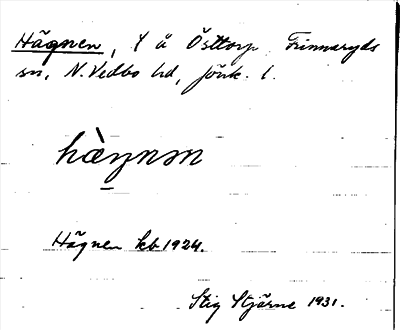 Hägnen, t å Östtorp Frinnaryds
sn, N. Vedbo hd, Jönk. l.
hàŋnm
Hägnen kb 1924.
Stig Stjärne 1931.